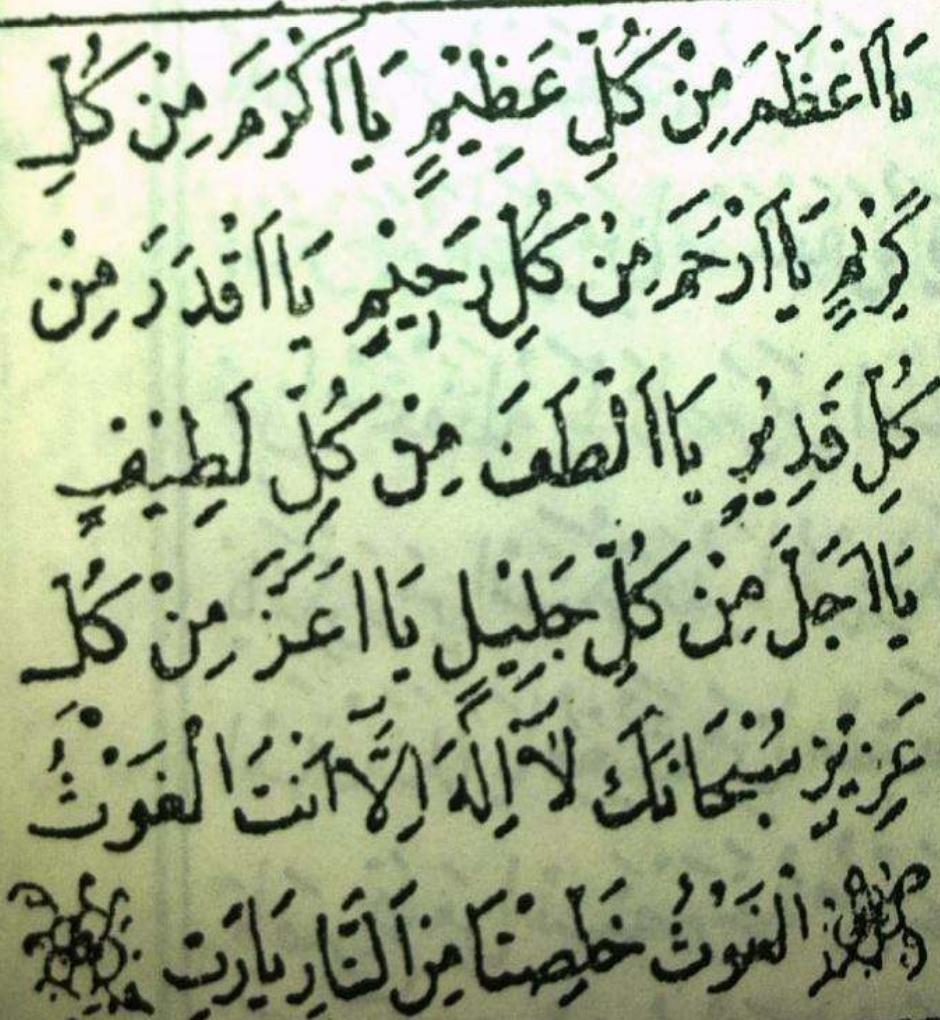 يَا اَعْظَمَ مِنْ كُلِّ عَظِيْمٍ يَا اَكْرَمَ مِنْ كُلِّ
كَرِيْمٍ يَا اَرْحَمَ مِنْ كُلِّ رَحِيْمٍ يَا اَقْدَرَ مِنْ
كُلِّ قَدِيْرٍ يَا اَلْطَفَ مِنْ كُلِّ لَطِيْفٍ
يَا اَجَلَّ مِنْ كُلِّ جَلِيْلٍ يَا اَعَزَّ مِنْ كُلِّ
عَزِيْزٍ سُبْحَانَكَ لَآ اِلٰهَ اِلَّا اَنْتَ الْغَوْثُ
الْغَوْثُ خَلِّصْنَا مِنَ النَّارِ يَارَبِّ